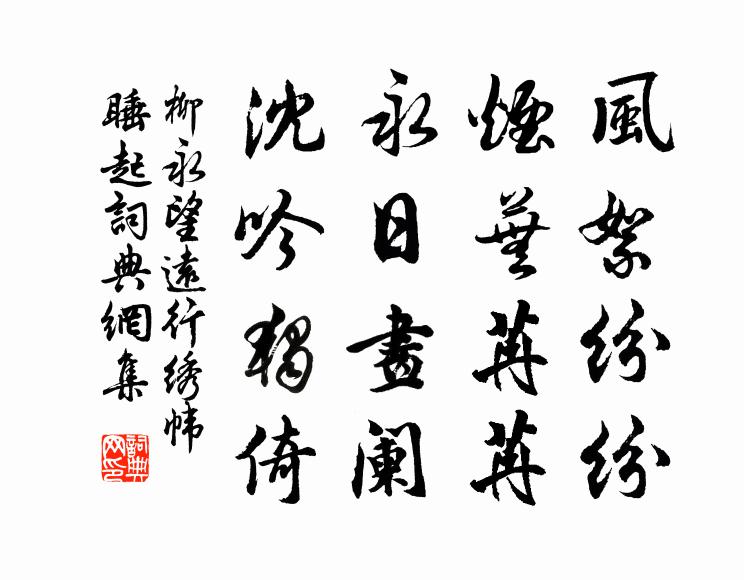 風絮紛紛
煙蕪苒苒
永日畫闌
沈吟獨倚
柳永望遠行綉幃
睡起詞典網集
詞典
网印